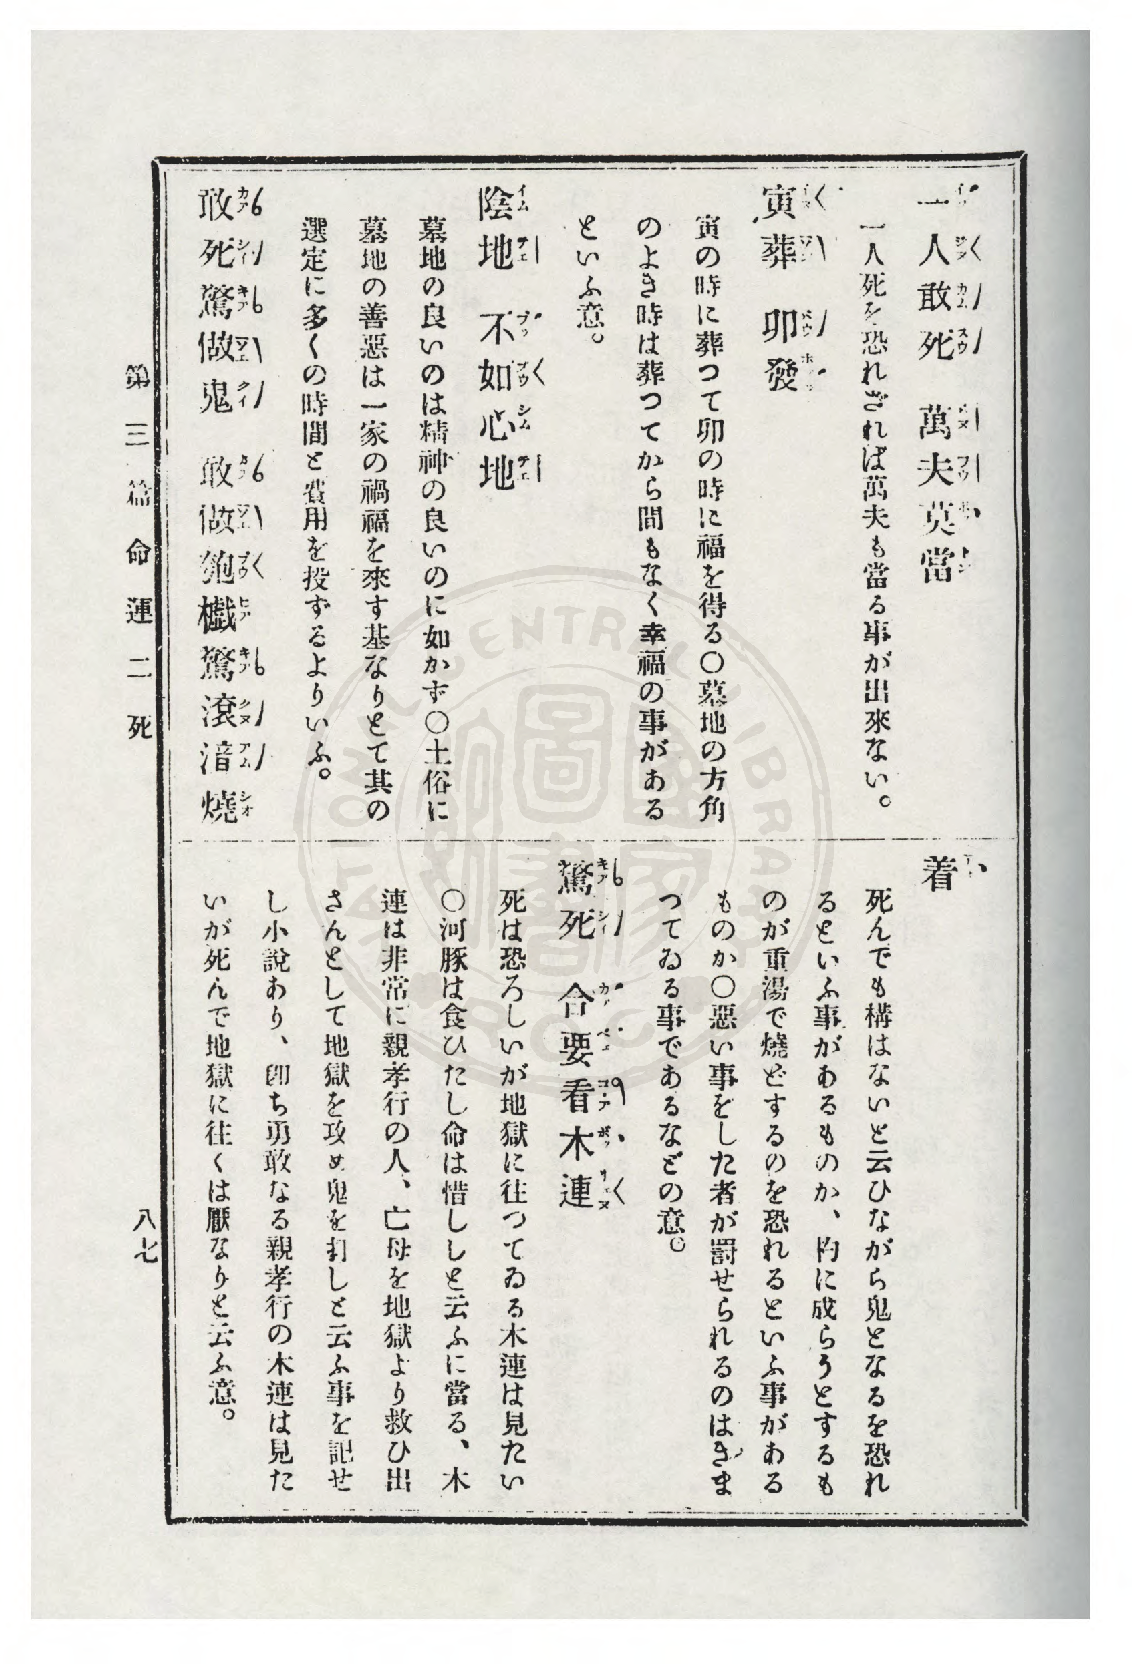 一人敢死　萬夫莫當
一人死を恐れざれば萬夫も當る事が出來ない。
寅葬　卯發
寅の時に葬つて卯の時に福を得る〇墓地の方角
のよき時は葬つてから間もなく幸福の事がある
といふ意。
陰地　不如心地
墓地の良いのは精神の良いのに如かず〇土俗に
墓地の善惡は一家の禍福を來す基なりとて其の
選定に多くの時間と費用を投ずるよりいふ。
敢死驚做鬼　敢做匏桸驚滾湆燒
着
死んでも構はないと云ひながら鬼となるを恐れ
るといふ事があるものか、杓に成らうとするも
のが重湯で燒どするのを恐れるといふ事がある
ものか〇惡い事をした者が罰せられるのはきま
つてゐる事であるなどの意。
驚死　合要看木連
死は恐ろしいが地獄に往つてゐる木連は見たい
〇河豚は食ひたし命は惜ししと云ふに當る、木
連は非常に親孝行の人、亡母を地獄より救ひ出
さんとして地獄を攻め鬼を打しと云ふ事を記せ
し小說あり、卽ち勇敢なる親孝行の木連は見た
いが死んで地獄に往くは厭なりと云ふ意。
第三篇　命運　二　死
八七
NATIONAL CENTRAL LIBRARY
ROC
國家圖書館